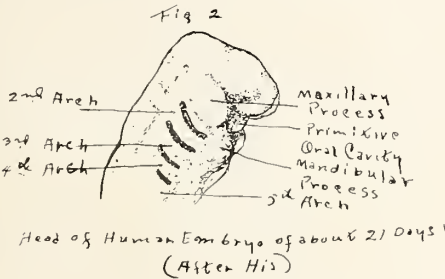 Fig 2
2nd Arch
3rd Arch
4th Arch
Maxillary
Process
Primitive
Oral Cavity
Mandibular
Process
5th Arch
Head of Human Embryo of about 21 Days
(After His)